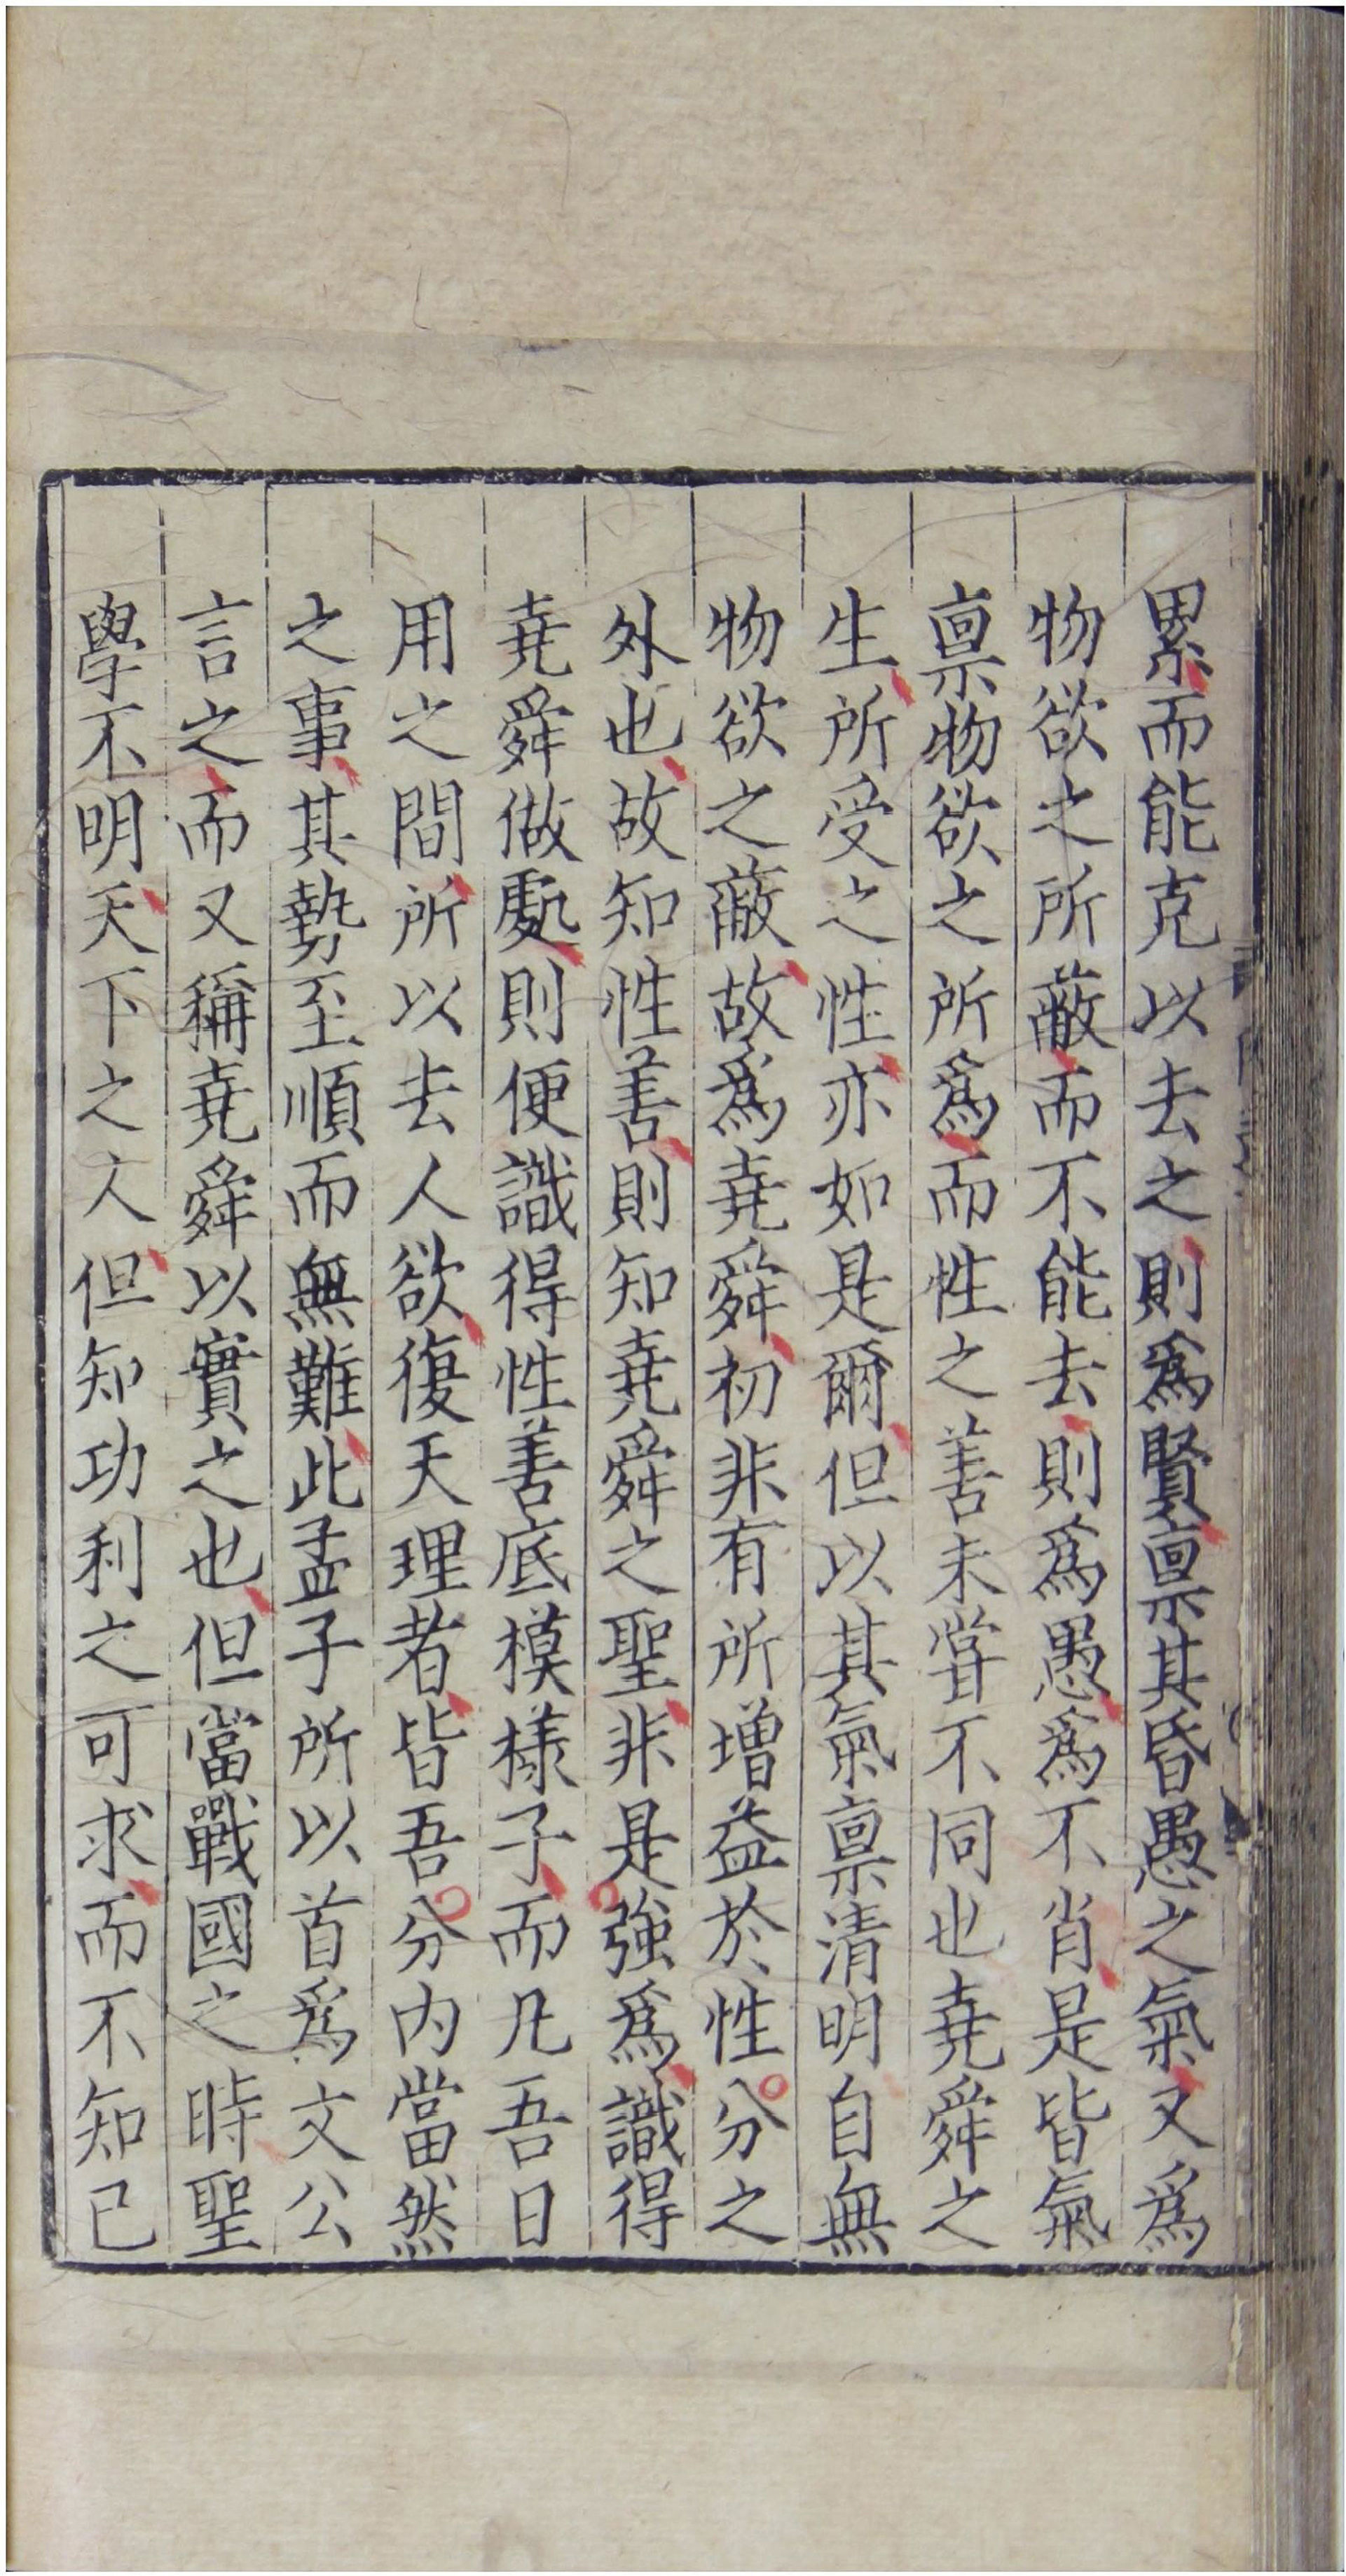 累而能克以去之則爲賢禀其昏愚之氣又爲
物欲之所蔽而不能去則爲愚爲不肖是皆氣
禀物欲之所爲而性之善未甞不同也堯舜之
生所受之性亦如是爾但以其氣禀清明自無
物欲之蔽故爲堯舜初非有所增益於性分之
外也故知性善則知堯舜之聖非是強爲識得
堯舜做處則便識得性善底模樣子而凡吾日
用之間所以去人欲復天理者皆吾分内當然
之事其勢至順而無難此孟子所以首爲文公
言之而又稱堯舜以實之也但當戰國之時聖
學不明天下之人但知功利之可求而不知已